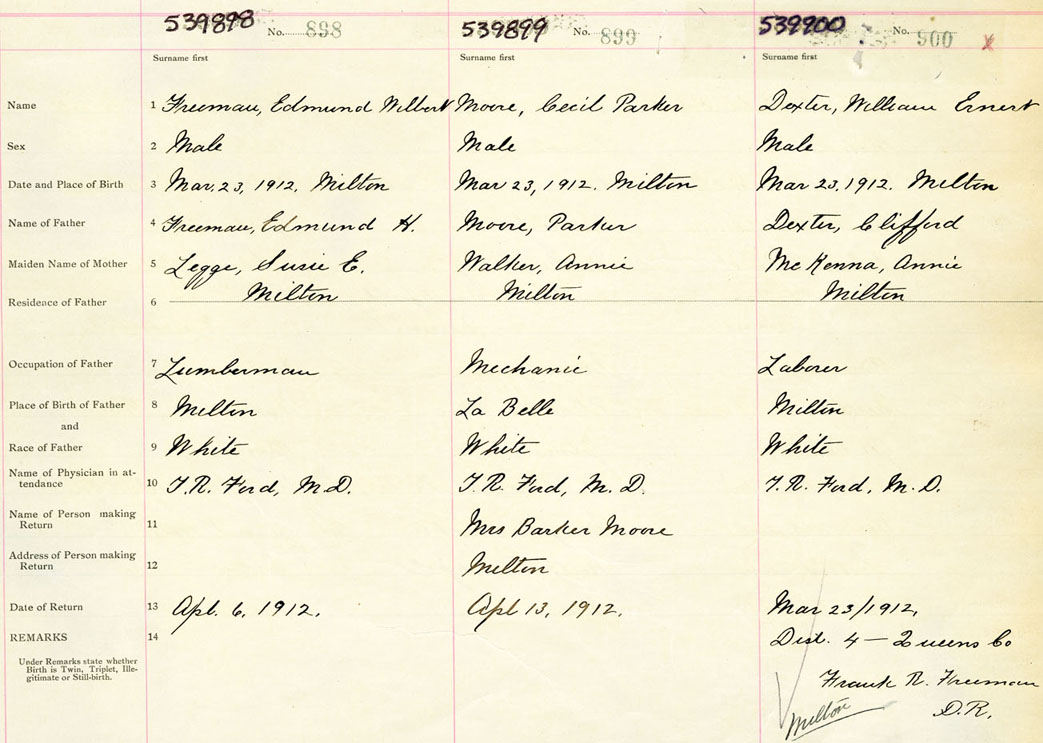 539898 No. 898 539899 No. 899 539900 No. 900 x
Surname first Surname first Surname first
Name 1 Freeman, Edmund Wilbert Moore, Cecil Parker Dexter, William Ernert
Sex 2 Male Male Male
Date and Place of Birth 3 Mar. 23, 1912, Milton Mar 23, 1912. Milton Mar 23, 1912. Milton
Name of Father 4 Freeman, Edmund H. Moore, Parker Dexter, Clifford
Maiden Name of Mother 5 Legge, Susie E. Walker, Annie McKenna, Annie
Residence of Father 6 Milton Milton Milton
Occupation of Father 7 Lumberman Mechanic Laborer
Place of Birth of Father 8 Milton La Belle Milton
and
Race of Father 9 White White White
Name of Physician in at-
tendance 10 T.R. Ford, M.D. T.R. Ford, M.D. T.R. Ford, M.D.
Name of Person making
Return 11 Mrs Barker Moore
Address of Person making
Return 12 Milton
Date of Return 13 Apl. 6, 1912. Apl 13, 1912. Mar 23/1912,
REMARKS 14 Dist. 4 — Queens Co
Under Remarks state whether
Birth is Twin, Triplet, Ille-
gitimate or Still-birth.
Frank R. Freeman
D.R.
Milton